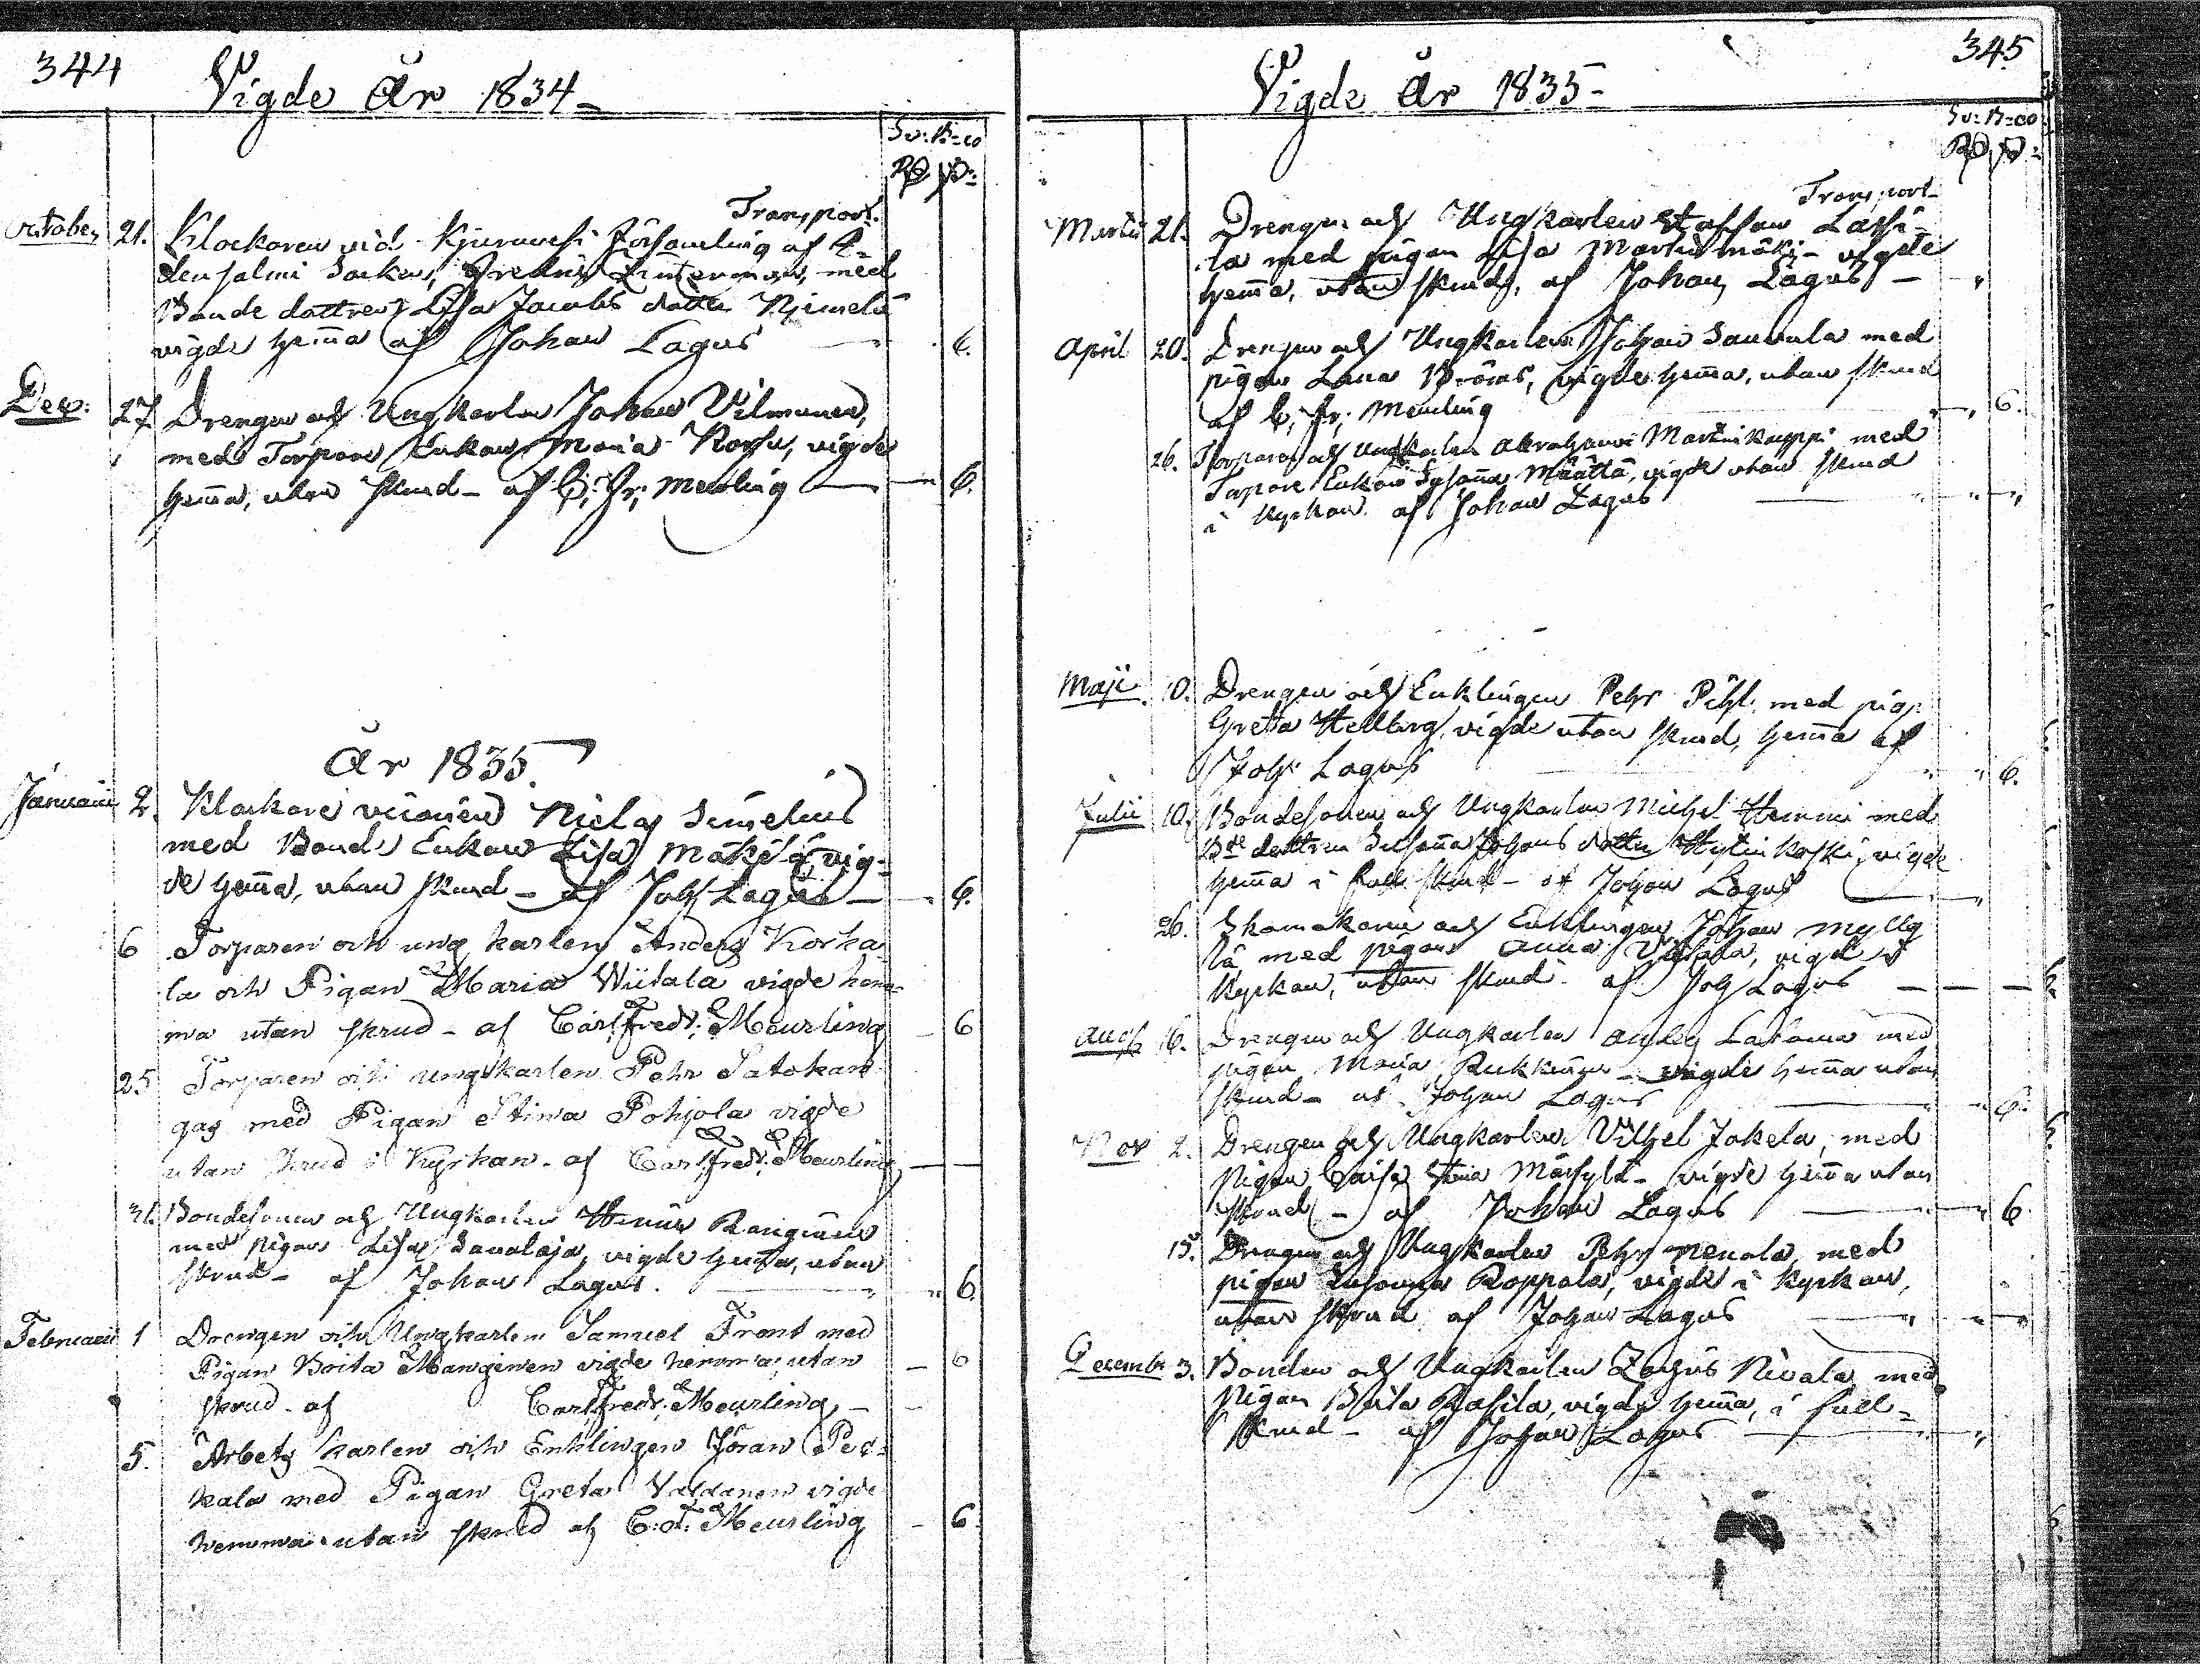 344
Vigde År 1834
Sv: B=co
Transport.
October 21. Klockaren vid Kjuruvesi församling af I-
densalmi Socken, Fredric Linterman, med
Bonde dottren Lisa Jacobs dotter Niemelä
vigde hem̄a af Johan Lagus 6.
Dec: 27 Drengen och Ungkarlen Johan Vilmunen,
med Torpare Enkan Maria Korsu, vigde
hem̄a, utan skrud - af C. Fr. Meurling 6.
År 1835
Januarii 2. Klockare Niclas Simelius
med Bonde Enkan Lisa Mäkelä vig-
de hem̄a, utan skrud - af Joh Lagus 6.
6 Torparen och ung karlen Anders Korka-
la och Pigan Maria Wiitala vigde hem-
ma utan skrud - af Carl Fredr. Meurling 6
25 Torparen och ungkarlen Pehr Satokan-
gas med Pigan Stina Pohjola vigde
utan skrud i Kyrkan - af Carl Fredr. Meurling
31. Bondesonen och Ungkarlen Henric
med pigan Lisa Savolaja, vigde hem̄a, utan
skrud - af Johan Lagus. 6
Februarii 1 Drengen och Ungkarlen Samuel Frant med
Pigan Brita Manginen vigde hemma utan 6
skrud - af Carl Fredr. Meurling
5. Arbets karlen och Enklingen Jöran Pes-
kala med Pigan Greta vigde
hemma utan skrud af C. F. Meurling 6
345
Vigde År 1835
Sv: B=co
Transport
Martii 21. Drengen och Ungkarlen Staffan Lassi-
la med pigan Lisa Martinmäki - vigde
hem̄a, utan skrud, af Johan Lagus
April 20. Drengen och Ungkarlen Johan Sauvula med
pigan Lena vigde hem̄a, utan skrud
af C. Fr. Meurling 6.
26. Torparen och Ungkarlen Abraham Martinkauppi med
Torpare Enkan Susan̄a Määttä, vigde utan skrud
i Kyrkan af Johan Lagus
Maji 10. Drengen och Enklingen Pehr Pihl, med pig.
Greta Hellberg, vigde utan skrud, hem̄a af
Joh. Lagus 6.
Julii 10. Bondesonen och Ungkarlen Michel Hemmi med
Bde dottren Susan̄a Johans dotter Hytinkoski, vigde
hem̄a i full skrud - af Johan Lagus
26. Skomakaren och Enklingen Johan Mylly-
lä med pigan Anna vigde i
Kyrkan, utan skrud - af Joh Lagus
Aug 16. Drengen och Ungkarlen Anders med
pigan Maria vigde hem̄a utan
skrud - af Johan Lagus 6.
Nov 2. Drengen och Ungkarlen Vilhel Jakela, med
Pigan Caisa Stina Märsylä - vigde hem̄a utan
skrud - af Johan Lagus 6
15. Drengen och Ungkarlen Pehr Nenola, med
pigan Susanna Roppola, vigde i Kyrkan,
utan skrud af Johan Lagus
Decembr 3. Bonden och Ungkarlen Zachris Nivala med
Pigan Brita Rasila, vigde hem̄a, i full-
skrud - af Johan Lagus